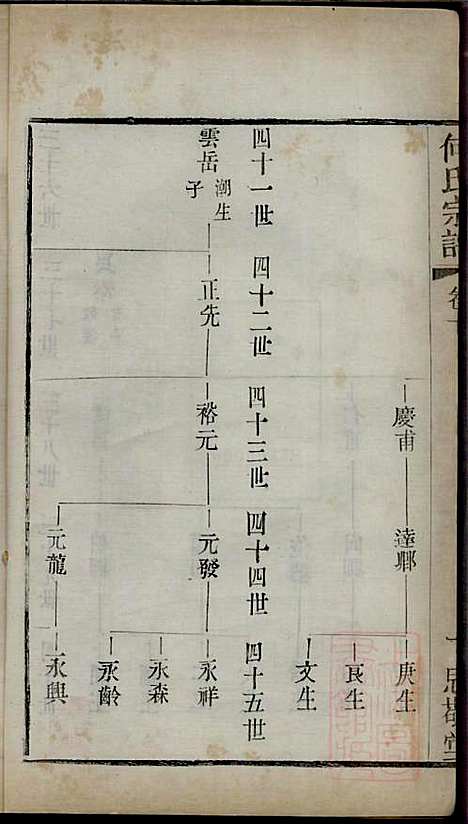 何氏宗譜
卷
思敬堂
慶甫
達鄰
庚生
良生
文生
四十一世 四十二世 四十三世 四十四世 四十五世
雲岳 潮生子
正先
裕元
元發
永祥
永森
永齡
元龍
永興